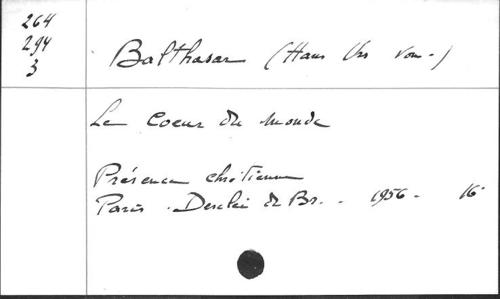 264
294
3
Balthasar (Hans Urs von-)
Le Coeur du Monde
Présence chrétienne
Paris. Desclée de Br. - 1956 - 16°